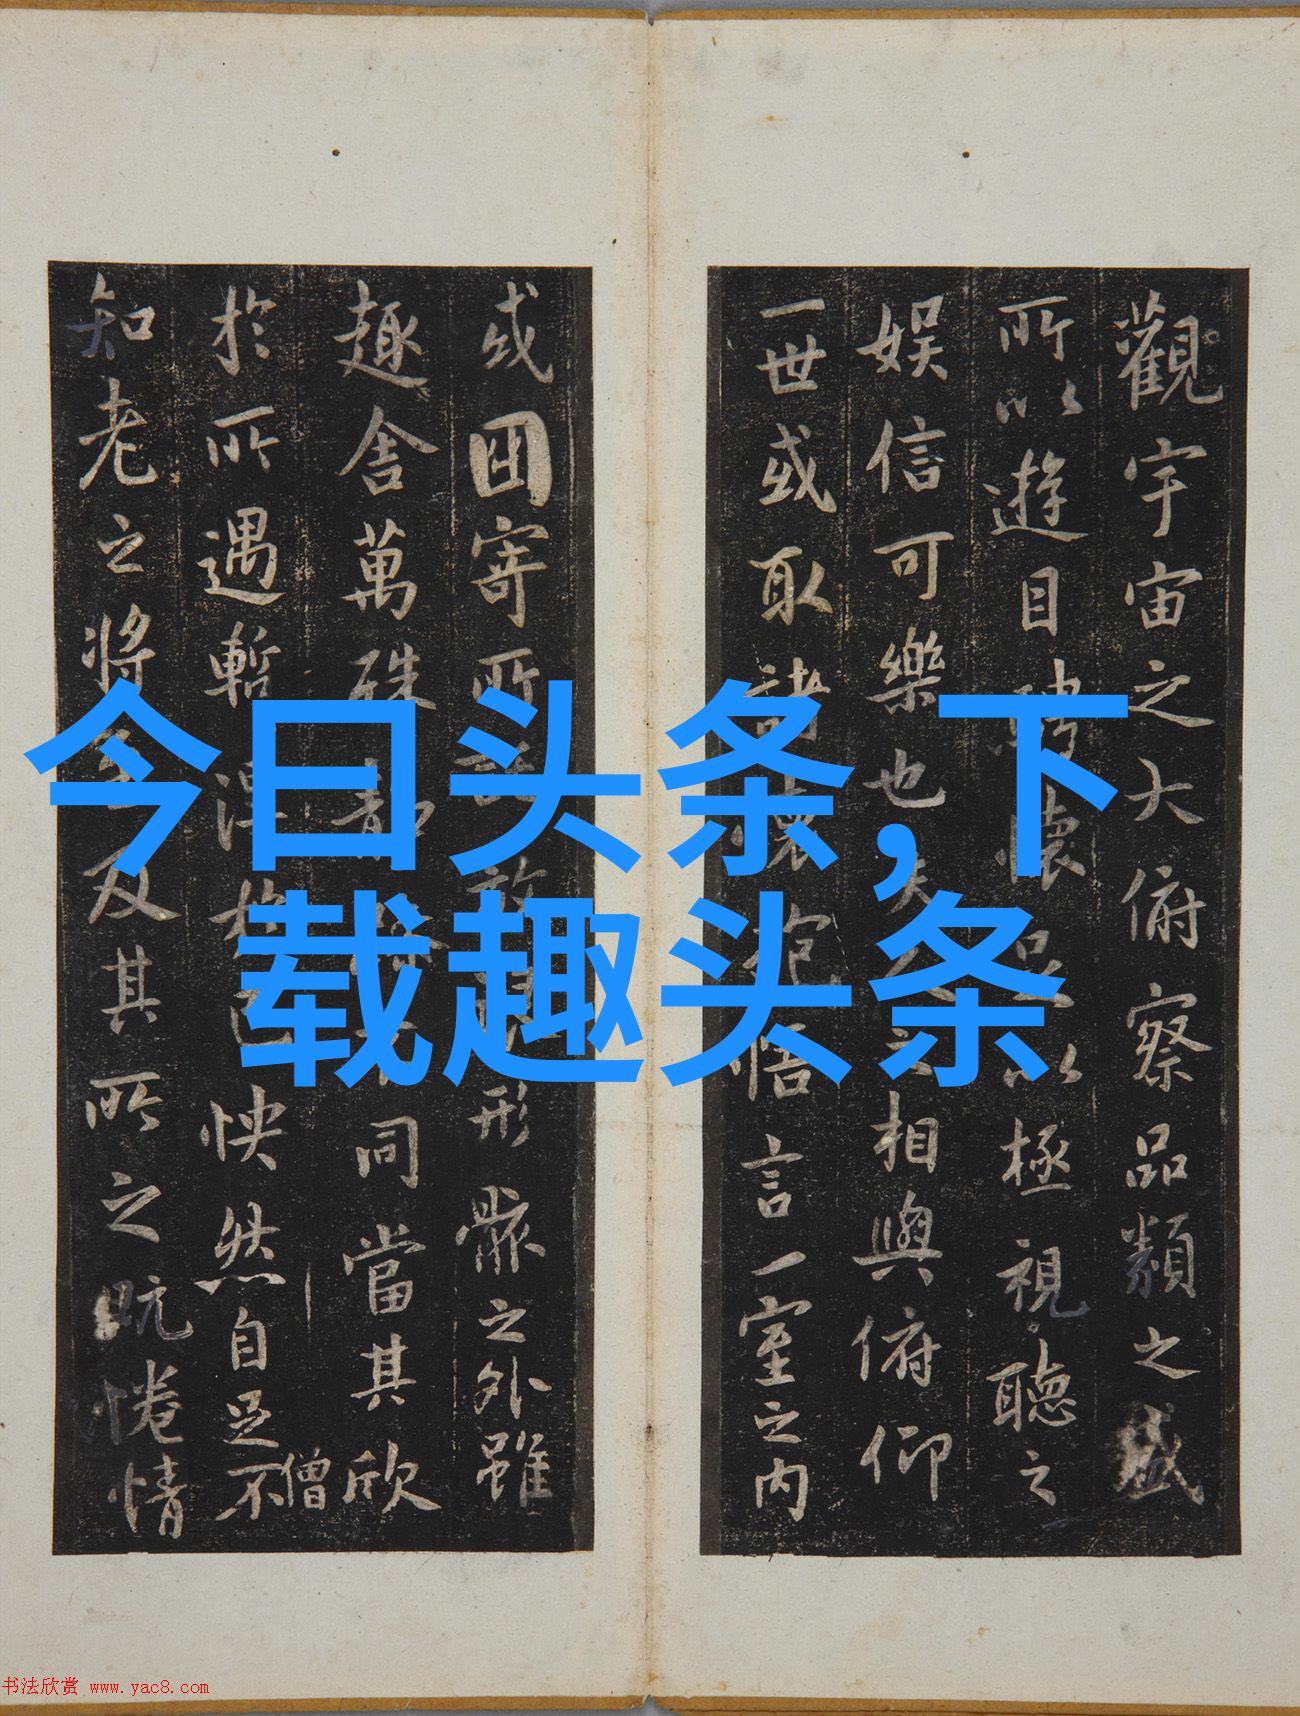 今曰头条,下
载趣头条
觀宇宙之大俯察品類之盛
所以遊目騁懷足以極視聽之
娱信可樂也夫人之相與俯仰
一世或取諸懷抱悟言一室之内
或因寄所託放浪形骸之外雖
趣舍萬殊静躁不同當其欣
僧
於所遇暫得於己怏然自足不
知老之將至及其所之既惓情
书法欣赏 www.yac8.com